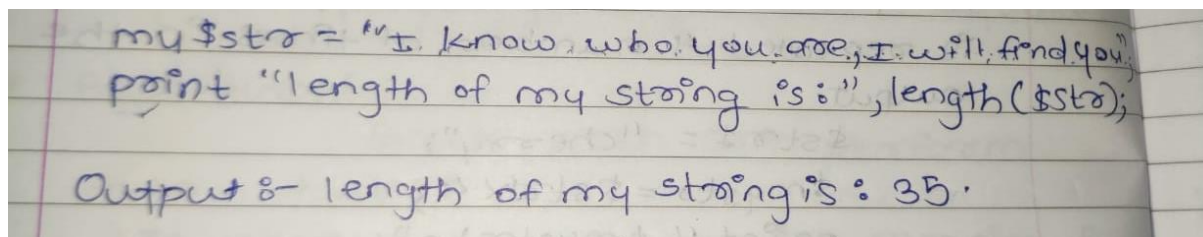 my $str = "I. know. who. you. are.; I. will. find. you";
print "length of my string is:", length($str);
Output :- length of my string is : 35.